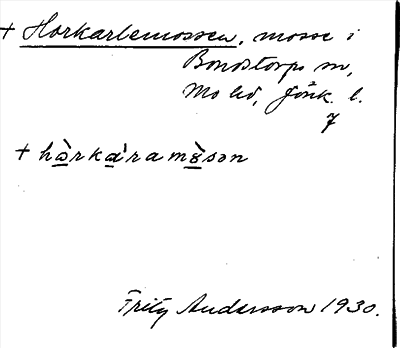 + Horkarlemossen, mosse i
Bondstorps sn,
Mo hd, Jönk. l.
7
+ hə̀rka̍ramò̱sən
Fritz Andersson 1930.